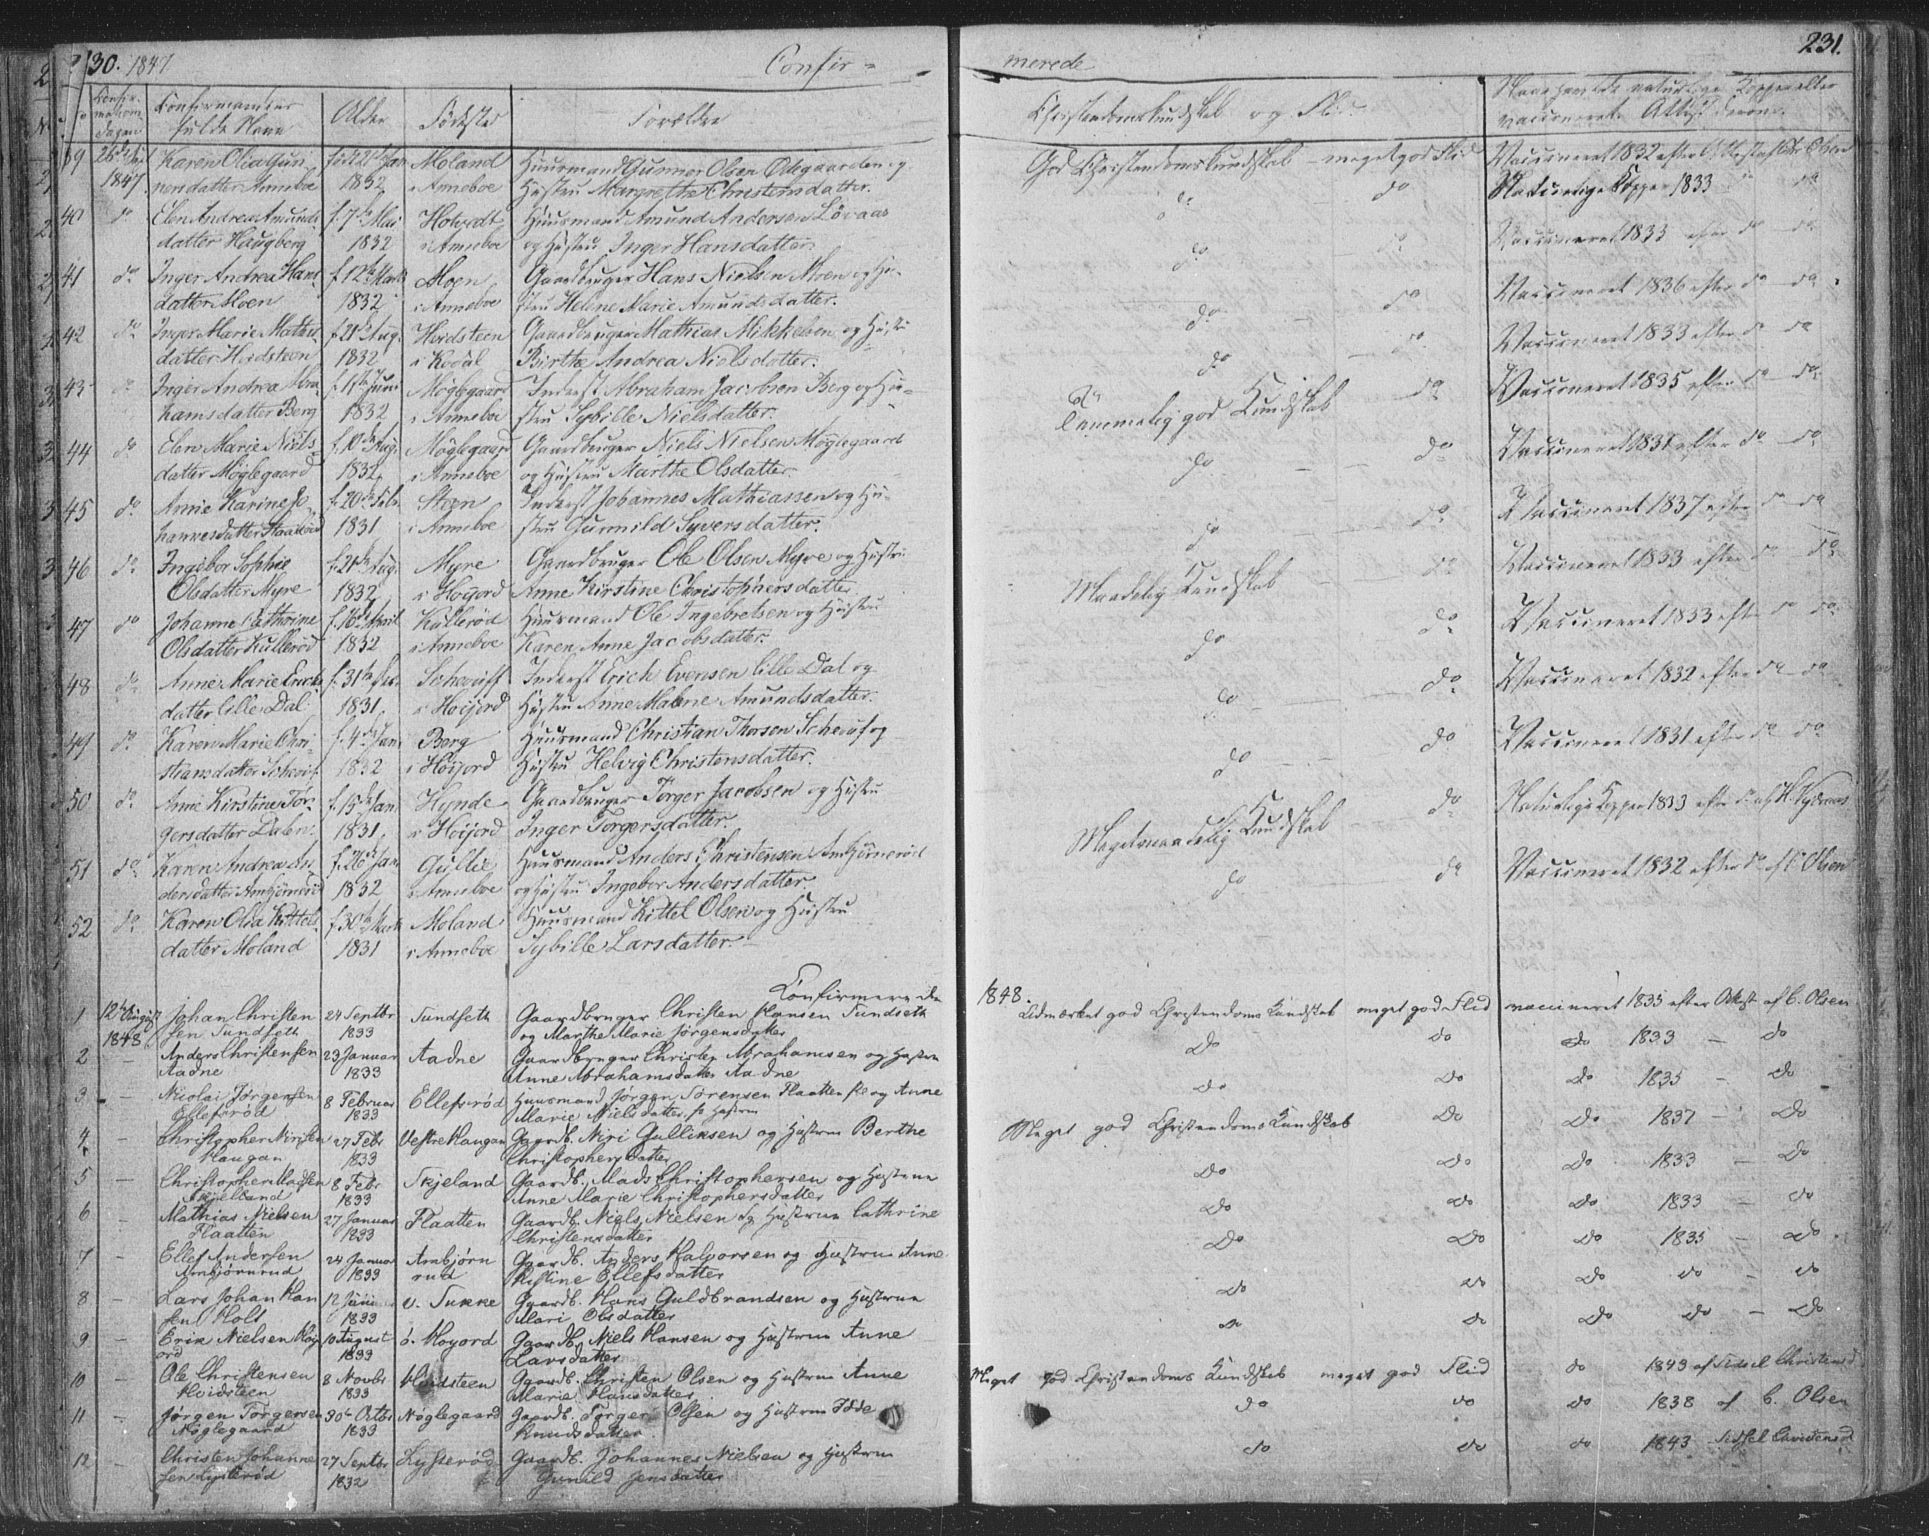 230. 1847 Confir-
merede 231.
Confir-
mations
dagen
Confirmanternes
fulde Navn
Alder
Fødested
Forældre
Christendomskundskab og Flid
Naar havt de naturlige Kopper eller
vaccineret. Attest derom.
39 1847. Karen Olia Gun-
nersdatter Anneboe 1832 Moland
i Anneboe
Huusmand Gunner Olsen Odegaarden og
Hustru Margrethe Christensdatter.
God Christendomskundskab – meget god Flid Vaccineret 1832 efter Attest af Chr. Olsen
40 do Elen Andrea Amunds
datter Haugberg f. 7de Mai
1832 i Anneboe
Huusmand Amund Andersen Lövaas
og Hustru Inger Hansdatter.
do do Naturlige Kopper 1833 do
41 do Inger Andrea Hans
datter Moen f. 12te Marts
1832 Moen
i Anneboe
Gaardbruger Hans Nielsen Moen og Hu-
stru Helene Marie Amundsdatter.
do do Vaccineret 1833 efter do do
42 do Inger Marie Mathis
datter Hvidsteen f. 21de Aug.
1832 Hvidsteen
i Kodal
Gaardbruger Mathias Mikkelsen og Hustru
Birthe Andrea Nielsdatter.
do do Vaccineret 1836 efter do do
43 do Inger Andrea Abra
hamsdatter Berg 1832 Möglegaard
i Anneboe
Inderst Abraham Jacobsen Berg og Hu-
stru Sybille Nielsdatter.
do do Vaccineret 1833 efter do do
44 do Elen Marie Niels
datter Möglegaard f. 10de Aug.
1832 Möglegaard
i Anneboe
Gaardbruger Niels Nielsen Möglegaard
og Hustru Marthe Olsdatter.
Temmelig god Kundskab do Vaccineret 1835 efter do do
45 do Anne Karine Jo
hannesdatter f. 20de Febr.
1831 Steen
i Anneboe
Inderst Johannes Mathiassen og Hu-
stru Gunnild Syversdatter.
do do Vaccineret 1831 efter do do
46 do Ingebor Sophie
Olsdatter Myre f. 21de Aug.
1832 Myre
i Hoijord
Gaardbruger Ole Olsen Myre og Hustru
Anne Kirstine Christophersdatter
do do Vaccineret 1837 efter do do
47 do Johanne Cathrine
Olsdatter Kullerød f. 16de April
1832 Kullerød
i Anneboe
Huusmand Ole Ingebretsen og Hustru
Karen Anne Jacobsdatter.
Maadelig Kundskab do Vaccineret 1833 efter do do
48 do Anne Marie Erichs
datter lille Dal 1831.
i Hoijord
Inderst Erich Evensen lille Dal og
Hustru Anne Malene Amundsdatter.
do do Vaccineret 1833 efter do do
49 do Karen Marie Chri-
stiansdatter f. 4de Jan.
1832 Berg
i Hoijord
Huusmand Christian Thorsen og
Hustru Helvig Christensdatter.
do do Vaccineret 1832 efter do do
50 do Anne Kirstine Tor-
gersdatter Dalen f. 15de Jan.
1831. Hynde
i Hoijord
Gaardbruger Torger Jacobsen og Hustru
Inger Torgersdatter.
do do Vaccineret 1831 efter do do
51 do Karen Andrea An
dersdatter f. 26de Jan.
1832 Gullie
i Anneboe
Huusmand Anders Christensen
og Hustru Ingebor Andersdatter.
Megetmaadelig Kundskab do Naturlige Kopper 1833 efter do af
52 do Karen Olia Kittels
datter Moland f. 30te Marts
1831 Moland
i Anneboe
Huusmand Kittel Olsen og Hustru
Sybille Larsdatter.
do do Vaccineret 1832 efter do af C. Olsen
Confirmerede 1848.
1 12te August
1848 Johan Christen
sen Tundseth 24 Septbr
1833 Tundseth
Gaardbruger Christen Hansen Tundseth
og Marthe Marie Jørgensdatter
Udmærket god Christendoms Kundskab meget god Flid vaccineret 1835 efter Attest af C. Olsen
2 – Anders Christensen
Aadne 23 Januar
1833 Aadne
Gaardbruger Christen Abrahamsen og Hustru
Anne Abrahamsdatter Aadne
Do do Do 1833 – do
3 – Nicolai Jørgensen
Ellefsrød 8 Februar
1833 Ellefsrød
Huusmand Jørgen Sørensen Flaatten og Anne
Marie Nielsdatter
Do Do Do 1835 – Do
4 – Christopher Nirisen
Haugan 27 Febr
1833 Vestre Haugan
Gaardb. Niri Gulliksen og Hustrue Berthe
Christophersdatter
Meget god Christendoms Kundskab Do Do 1837 – Do
5 – Christopher Madsen
Skjelland 8 Febr
1833 Skjeland
Gaardb. Mads Christophersen og Hustrue
Anne Marie Christophersdatter
Do Do Do 1833 – Do
6 – Mathias Nielsen
Flaatten 27 Januar
1833 Flaatten
Gaardb. Niels Nielsen og Hustrue Cathrine
Christensdatter
Do Do Do 1833 – do
7 – Ellef Andersen
Arnbjørnrud 24 Januar
1833 Arnbjørn
rud
Gaardb. Anders Halvorsen og Hustrue Anne
Kirstine Ellefsdatter
Do Do Do 1835 – do
8 – Lars Johan Han
sen Holt 12 Juni
1833 v. Tukke
Gaardb. Hans Guldbrandsen og Hustrue
Mari Olsdatter
do do Do do – do
9 – Erik Nielsen Høy
ord 10 August
1833 ö. Høyord
Gaardb. Niels Hansen og Hustrue Anne
Larsdatter
do do Do Do – Do
10 – Ole Christensen
Hvidsteen 8 Novbr
1833 Hvidsteen
Gaardb. Christen Olsen og Hustrue Anne
Marie Hansdatter
Meget god Christendoms Kundskab meget god Flid do 1843 af Sidsel Christensd
11 – Jørgen Torgersen
Møglegaard 30te Octbr
1833 Møglegaard
Gaardb. Torger Olsen og Hustrue
Knudsdatter
do do do 1838 af C. Olsen
12 – Christen Johanne
sen Lysterød 27 Septbr
1832 Lysterød
Gaardb. Johannes Nielsen og Hustrue
Gunild Jensdatter
do do do 1843 Sidsel